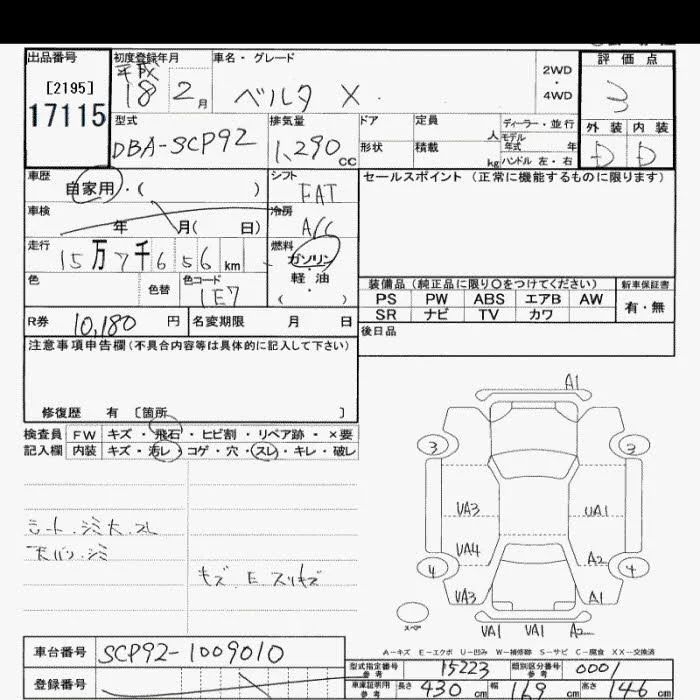 出品番号 初度登録年月 車名・グレード 評価点
[2195] 平成 2WD
17115 18 2月 ベルタ X ・ 3
4WD
型式 排気量 ドア 定員 ディーラー・並行 外装 内装
DBA-SCP92 1,290cc 人 モデル年式 年 D D
形状 積載 kg ハンドル 左・右
車歴 自家用・( ) シフト FAT セールスポイント (正常に機能するものに限ります)
車検 年 月( 日) 冷房 A/C
走行 15万7千656km 燃料 ガソリン・軽油 ( )
色 色替 色コード 1E7
装備品(純正品に限り〇をつけてください) 新車保証書
PS PW ABS エアB AW 有・無
SR ナビ TV カワ
R券 10,180円 名変期限 月 日 後日品
注意事項申告欄(不具合内容等は具体的に記入して下さい)
修復歴 有 〔箇所 〕
検査員 FW キズ・飛石・ヒビ割・リペア跡・×要
記入欄 内装 キズ・汚レ・コゲ・穴・スレ・キレ・破レ
シート.シミ大.スレ
天バリ.シミ
キズ.E スリキズ
A1
3 3
UA3 UA1
UA4 A2
4 4
UA3 A1
スペア
UA1 UA1 A2
A-キズ E-エクボ U-凹み W-補修跡 S-サビ C-腐食 XX-交換済
車台番号 SCP92-1009010
登録番号
型式指定番号 参考 15223 類別区分番号 参考 0001
車庫証明用 参考 長さ 430cm 幅 169cm 高さ 146cm